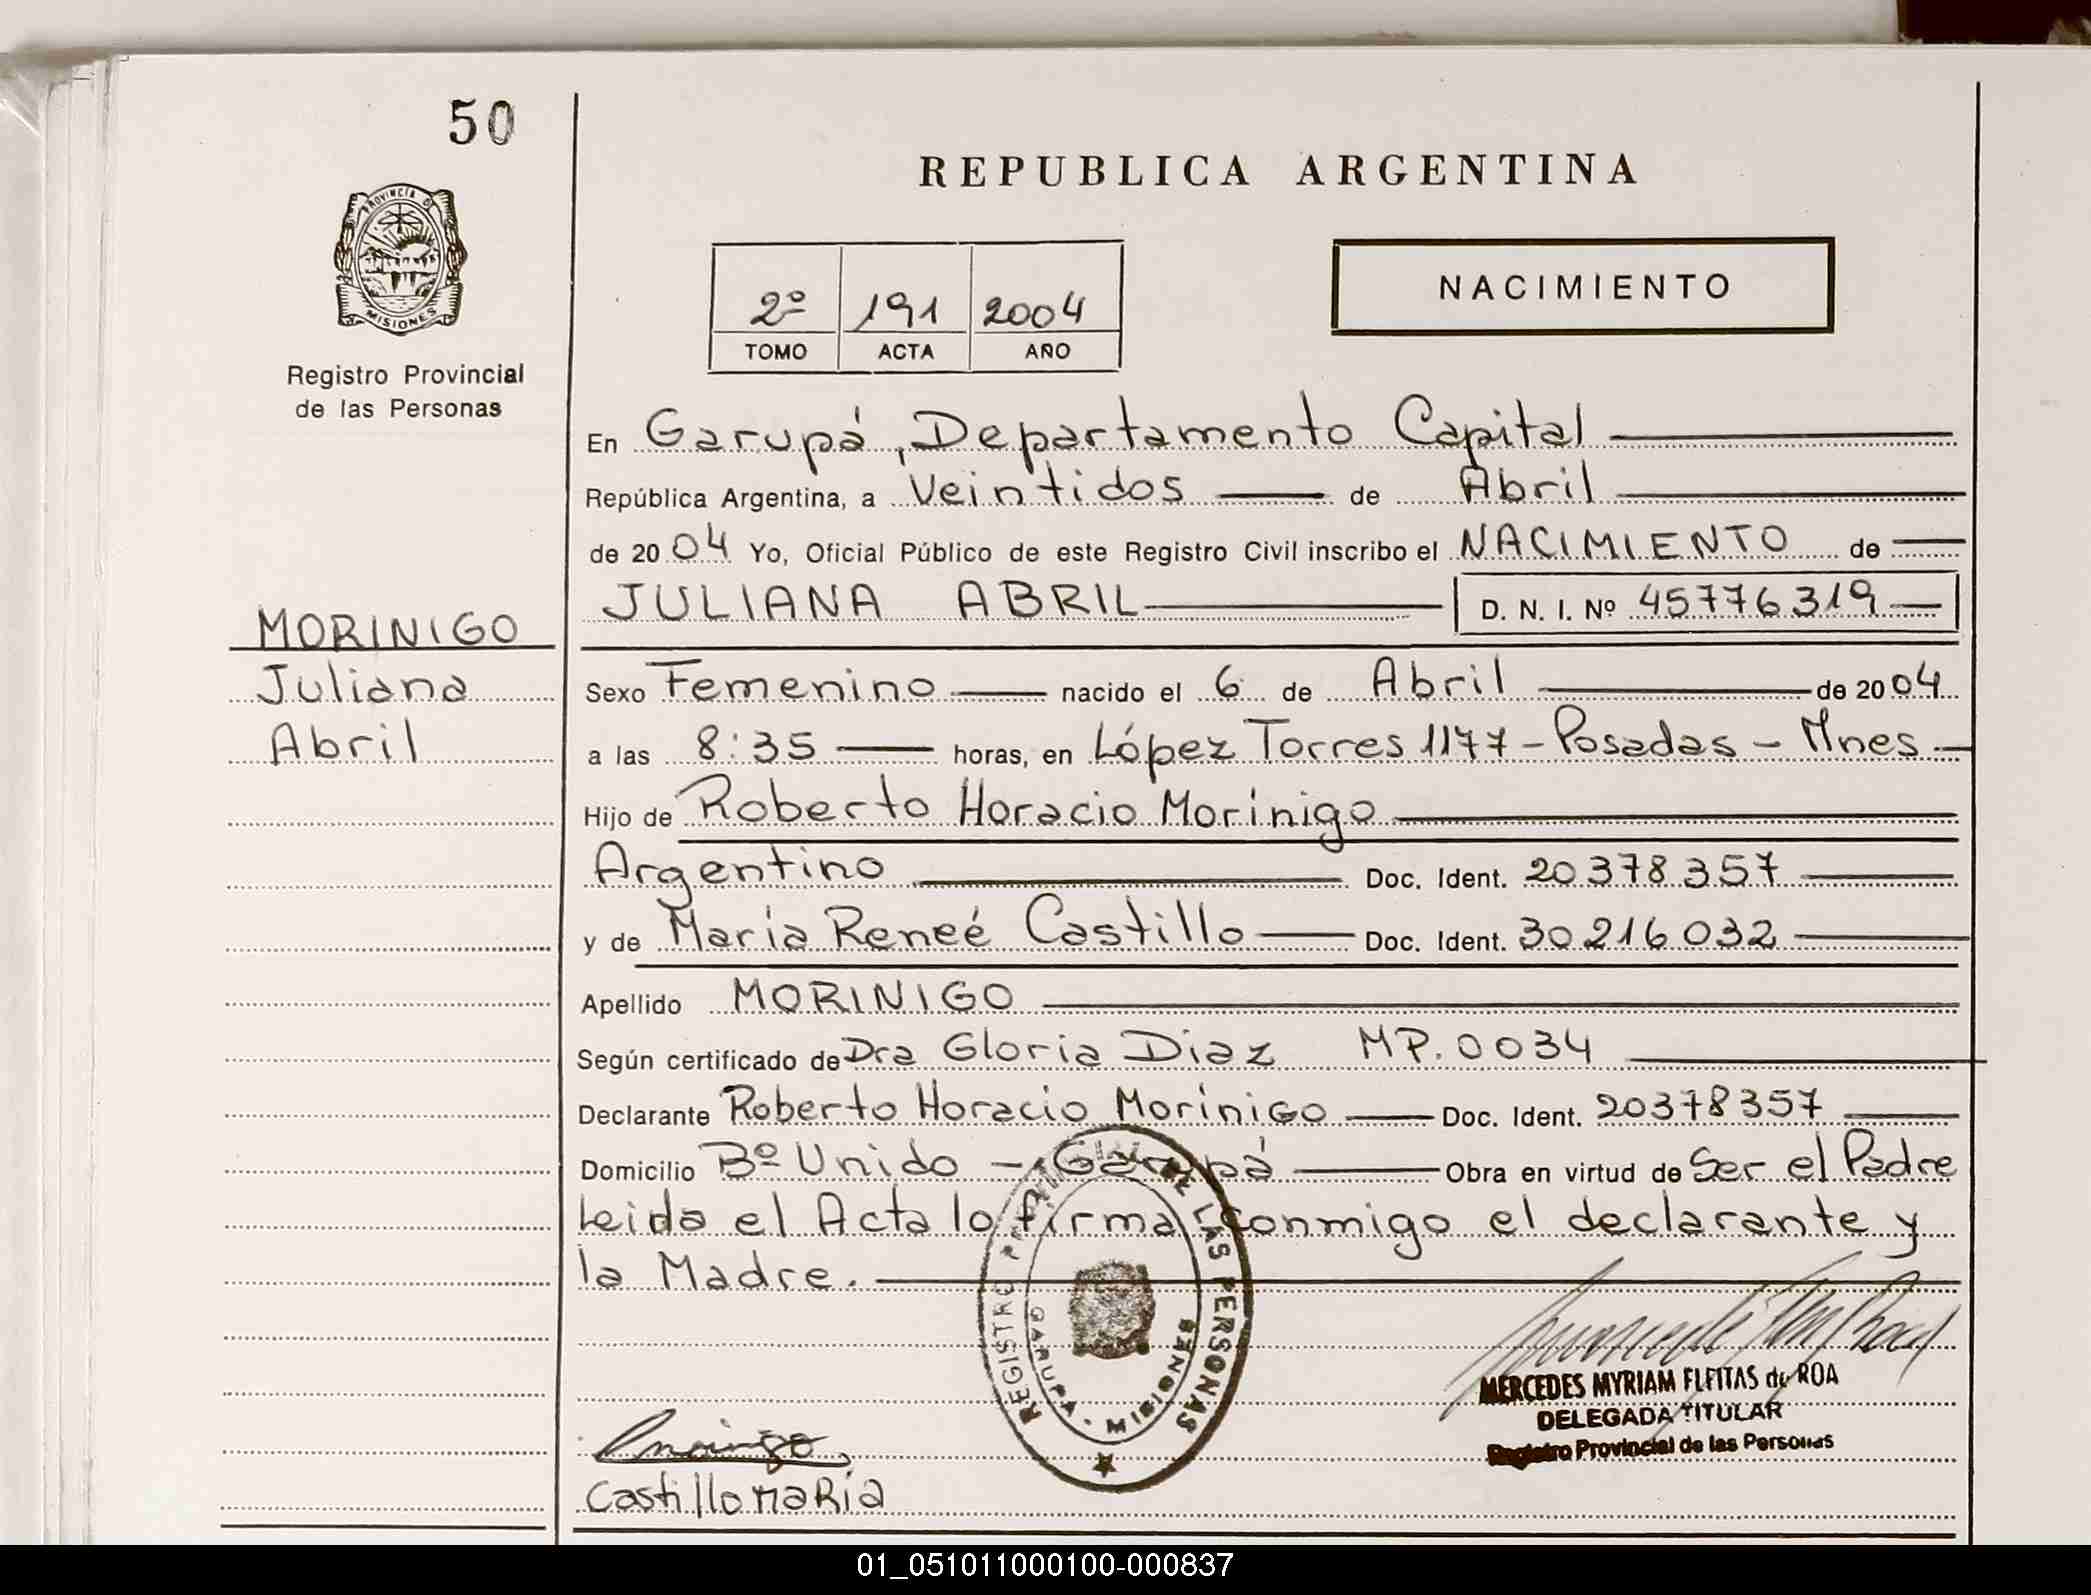 50
REPUBLICA ARGENTINA
PROVINCIA D
MISIONES
Registro Provincial
de las Personas
2º 191 2004
TOMO ACTA AÑO
NACIMIENTO
En Garupá, Departamento Capital
República Argentina, a Veintidos de Abril
de 2004 Yo, Oficial Público de este Registro Civil inscribo el NACIMIENTO de
JULIANA ABRIL D. N. I. Nº 45776319
MORINIGO
Juliana
Abril
Sexo Femenino nacido el 6 de Abril de 2004
a las 8:35 horas, en López Torres 1177 - Posadas - Mnes
Hijo de Roberto Horacio Morinigo
Argentino Doc. Ident. 20378357
y de María Reneé Castillo Doc. Ident. 30216032
Apellido MORINIGO
Según certificado de Dra Gloria Diaz MP. 0034
Declarante Roberto Horacio Morinigo Doc. Ident. 20378357
Domicilio Bº Unido - Garupá Obra en virtud de Ser el Padre
Leida el Acta lo firma conmigo el declarante y
la Madre.
REGISTRO PROVINCIAL DE LAS PERSONAS
GARUPA - MISIONES
MERCEDES MYRIAM FLEITAS de ROA
DELEGADA TITULAR
Registro Provincial de las Personas
Castillo MaRía
01_051011000100-000837